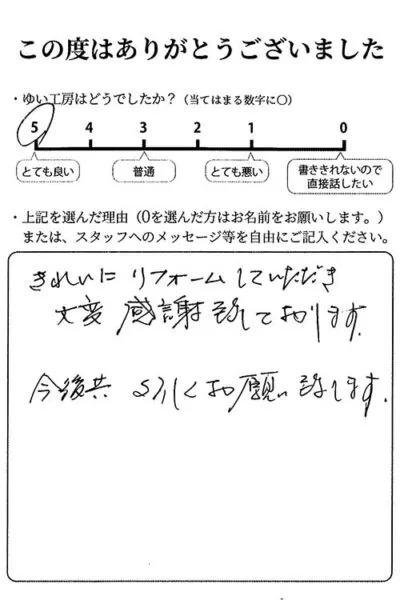 この度はありがとうございました
・ゆい工房はどうでしたか？（当てはまる数字に○）
5 4 3 2 1 0
とても良い 普通 とても悪い 書ききれないので直接話したい
・上記を選んだ理由（0を選んだ方はお名前をお願いします。）
または、スタッフへのメッセージ等を自由にご記入ください。
きれいにリフォームしていただき
大変感謝致しております。
今後共よろしくお願い致します。